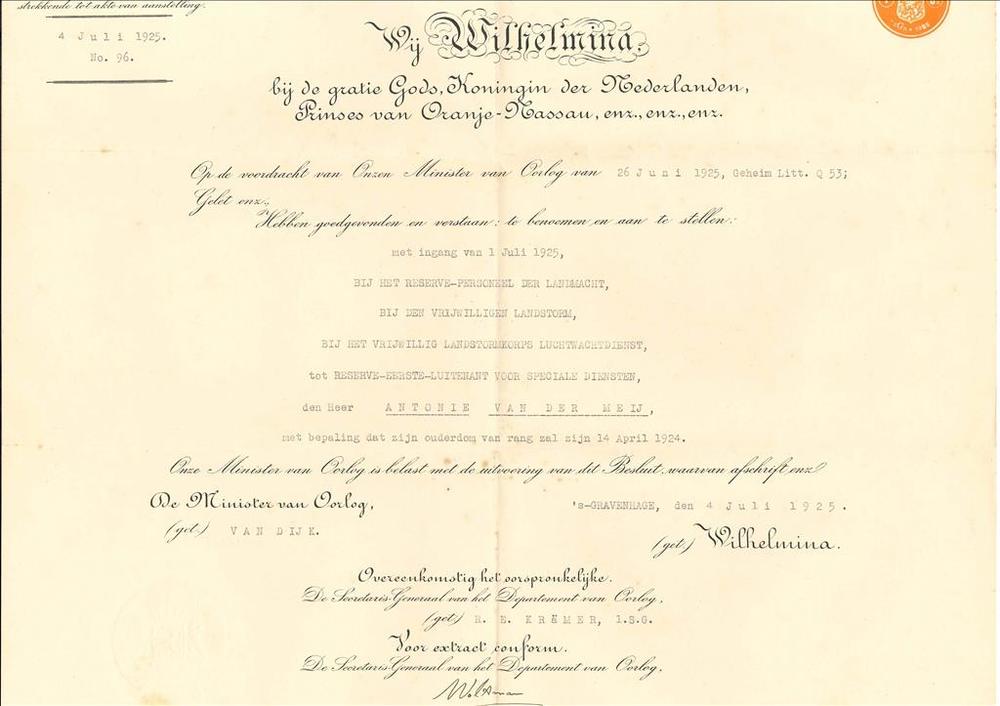 strekkende tot akte van aanstelling.
4 Juli 1925.
No. 96.
Wij Wilhelmina,
bij de gratie Gods, Koningin der Nederlanden,
Prinses van Oranje-Nassau, enz., enz., enz.
Op de voordracht van Onzen Minister van Oorlog van 26 Juni 1925, Geheim Litt. Q 53;
Gelet enz.,
Hebben goedgevonden en verstaan: te benoemen en aan te stellen:
met ingang van 1 Juli 1925,
BIJ HET RESERVE-PERSONEEL DER LANDMACHT,
BIJ DEN VRIJWILLIGEN LANDSTORM,
BIJ HET VRIJWILLIG LANDSTORMKORPS LUCHTWACHTDIENST,
tot RESERVE-EERSTE-LUITENANT VOOR SPECIALE DIENSTEN,
den Heer ANTONIE VAN DER MEIJ,
met bepaling dat zijn ouderdom van rang zal zijn 14 April 1924.
Onze Minister van Oorlog is belast met de uitvoering van dit Besluit, waarvan afschrift enz
De Minister van Oorlog,
(get.) VAN DIJK.
's-GRAVENHAGE, den 4 Juli 1925.
(get.) Wilhelmina.
Overeenkomstig het oorspronkelijke.
De Secretaris-Generaal van het Departement van Oorlog,
(get.) R. E. KRÄMER, l.S.G.
Voor extract conform.
De Secretaris-Generaal van het Departement van Oorlog,